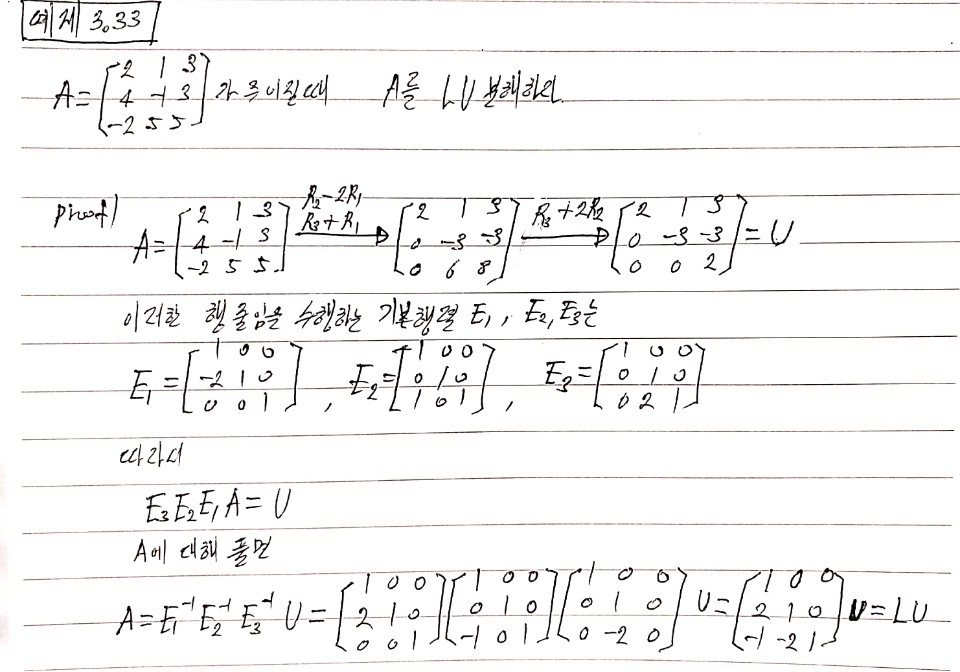 예제 3.33
A = [2 1 3; 4 -1 3; -2 5 5] 가 주어질때 A를 LU 분해하라.
proof) A = [2 1 3; 4 -1 3; -2 5 5] R₂-2R₁ R₃+R₁ → [2 1 3; 0 -3 -3; 0 6 8] R₃+2R₂ → [2 1 3; 0 -3 -3; 0 0 2] = U
이러한 행 줄임을 수행하는 기본행렬 E₁, E₂, E₃는
E₁ = [1 0 0; -2 1 0; 0 0 1], E₂ = [1 0 0; 0 1 0; 1 0 1], E₃ = [1 0 0; 0 1 0; 0 2 1]
따라서
E₃E₂E₁A = U
A에 대해 풀면
A = E₁⁻¹ E₂⁻¹ E₃⁻¹ U = [1 0 0; 2 1 0; 0 0 1] [1 0 0; 0 1 0; -1 0 1] [1 0 0; 0 1 0; 0 -2 0] U = [1 0 0; 2 1 0; -1 -2 1] U = LU